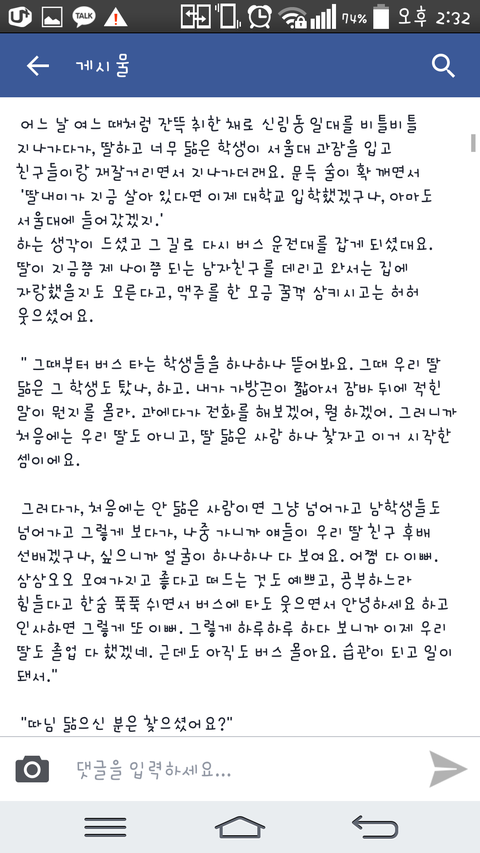 TALK
74% 오후 2:32
게시물
어느 날 여느 때처럼 잔뜩 취한 채로 신림동 일대를 비틀비틀
지나가다가, 딸하고 너무 닮은 학생이 서울대 과잠을 입고
친구들이랑 재잘거리면서 지나가더래요. 문득 술이 확 깨면서
'딸내미가 지금 살아 있다면 이제 대학교 입학했겠구나, 아마도
서울대에 들어갔겠지.'
하는 생각이 드셨고 그 길로 다시 버스 운전대를 잡게 되셨대요.
딸이 지금쯤 제 나이쯤 되는 남자친구를 데리고 와서는 집에
자랑했을지도 모른다고, 맥주를 한 모금 꿀꺽 삼키시고는 허허
웃으셨어요.
" 그때부터 버스 타는 학생들을 하나하나 뜯어봐요. 그때 우리 딸
닮은 그 학생도 탔나, 하고. 내가 가방끈이 짧아서 잠바 뒤에 적힌
말이 뭔지를 몰라. 과에다가 전화를 해보겠어, 뭘 하겠어. 그러니까
처음에는 우리 딸도 아니고, 딸 닮은 사람 하나 찾자고 이거 시작한
셈이에요.
그러다가, 처음에는 안 닮은 사람이면 그냥 넘어가고 남학생들도
넘어가고 그렇게 보다가, 나중 가니까 얘들이 우리 딸 친구 후배
선배겠구나, 싶으니까 얼굴이 하나하나 다 보여요. 어쩜 다 이뻐.
삼삼오오 모여가지고 좋다고 떠드는 것도 예쁘고, 공부하느라
힘들다고 한숨 푹푹 쉬면서 버스에 타도 웃으면서 안녕하세요 하고
인사하면 그렇게 또 이뻐. 그렇게 하루하루 하다 보니까 이제 우리
딸도 졸업 다 했겠네. 근데도 아직도 버스 몰아요. 습관이 되고 일이
돼서."
"따님 닮으신 분은 찾으셨어요?"
댓글을 입력하세요...